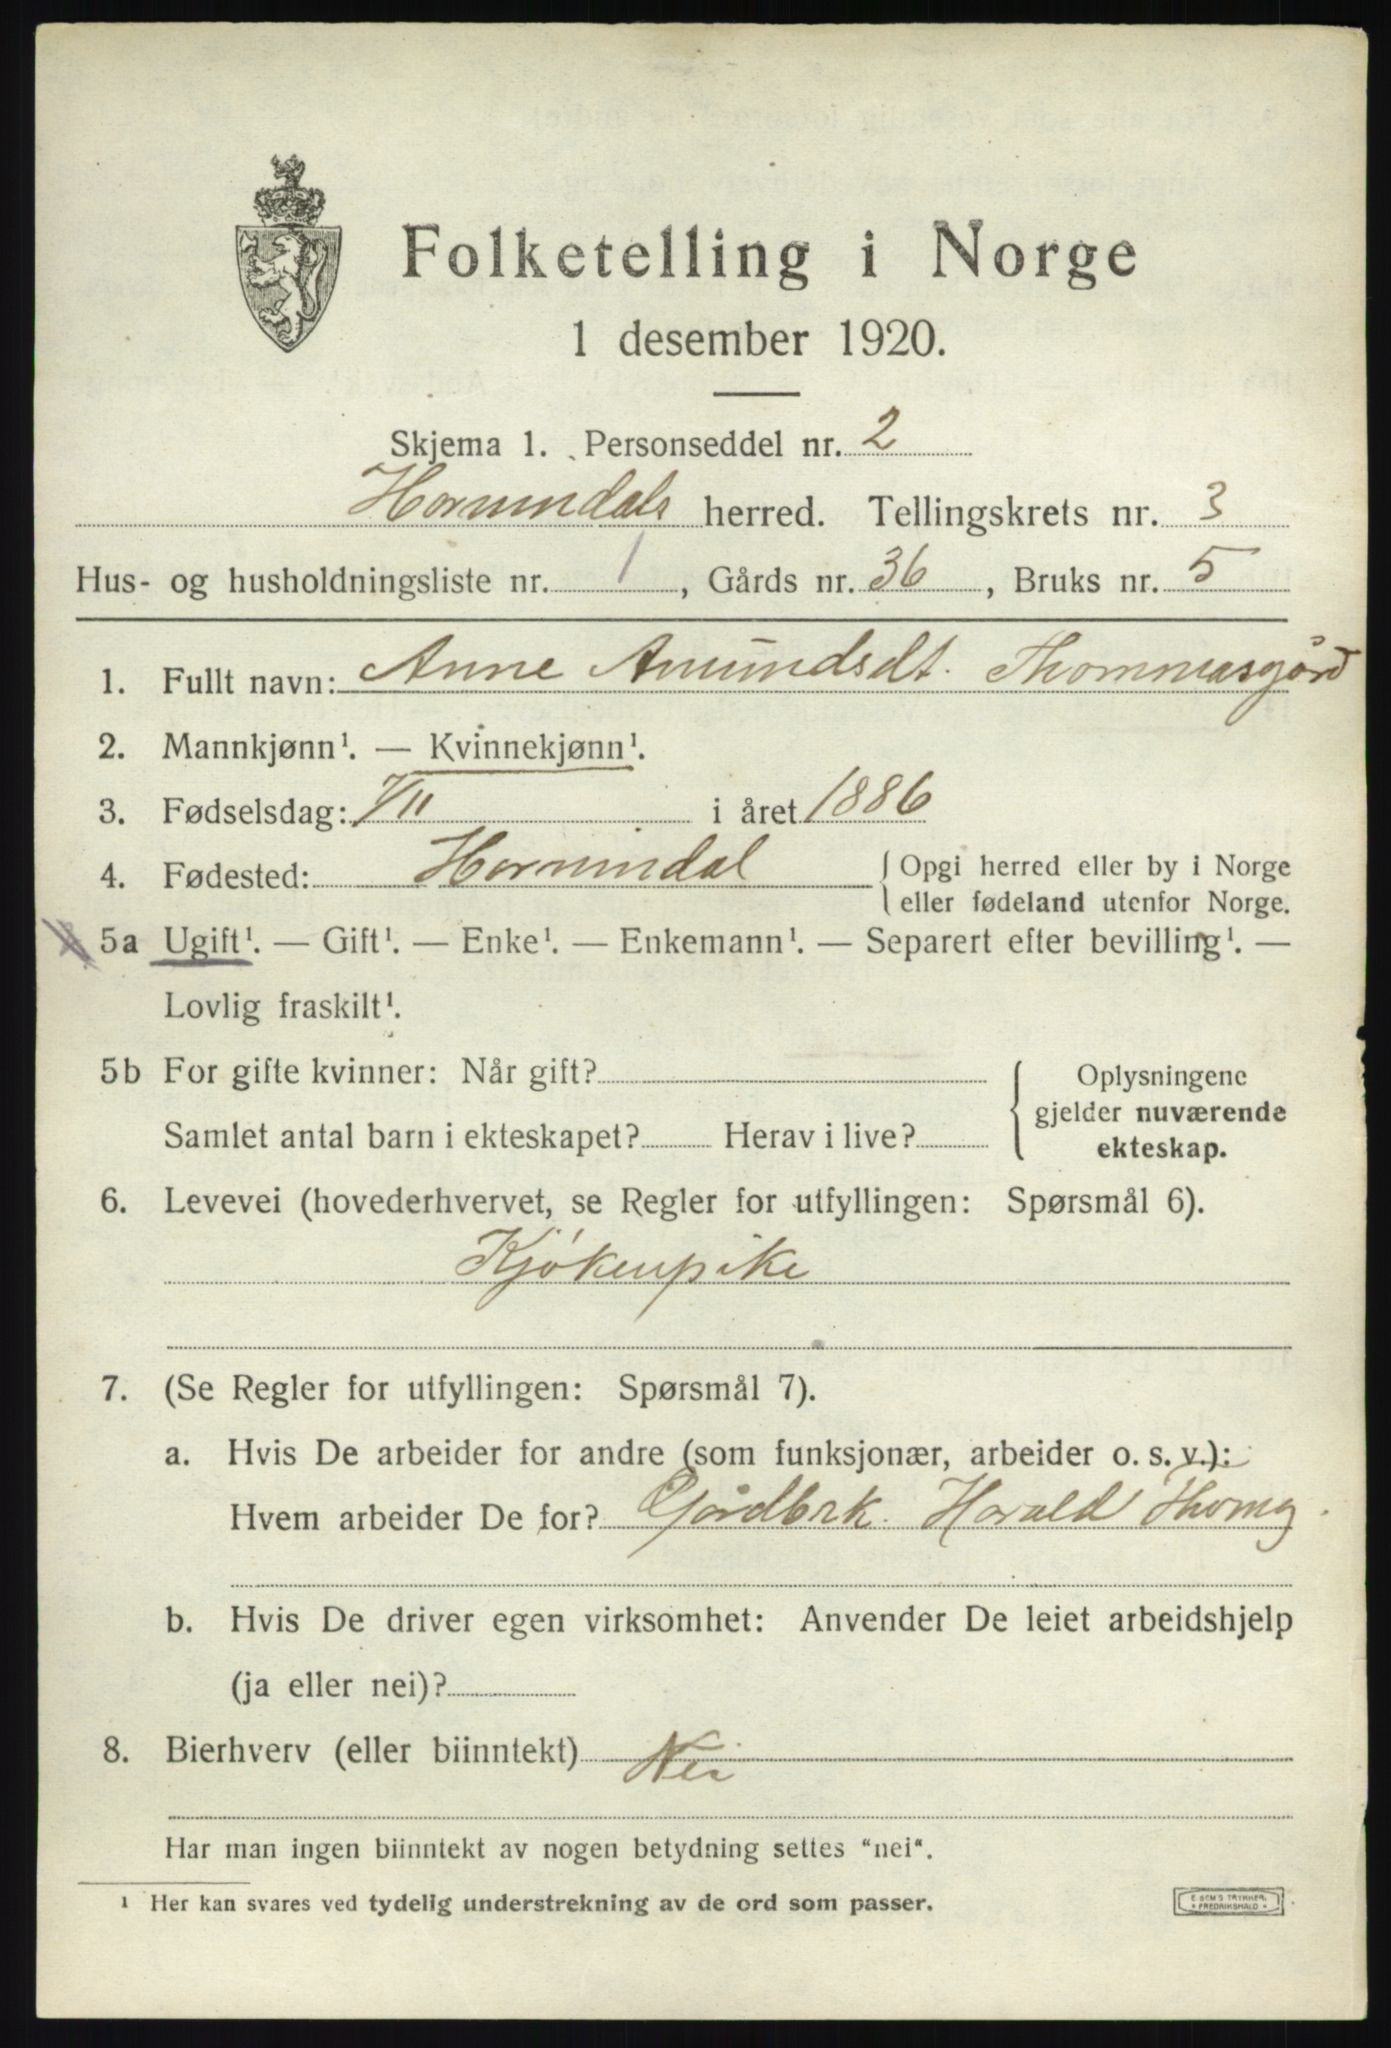 Folketelling i Norge
1 desember 1920.
Skjema 1. Personseddel nr. 2
Hornindals herred. Tellingskrets nr. 3
Hus- og husholdningsliste nr. 1, Gårds nr. 36, Bruks nr. 5
1. Fullt navn: Anne Amundsdt. Thommasgård
2. Mannkjønn¹. — Kvinnekjønn¹.
3. Fødselsdag: 7/11 i året 1886
4. Fødested: Hornindal { Opgi herred eller by i Norge
eller fødeland utenfor Norge.
5a Ugift¹. — Gift¹. — Enke¹. — Enkemann¹. — Separert efter bevilling¹. —
Lovlig fraskilt¹.
5b For gifte kvinner: Når gift? { Oplysningene
gjelder nuværende
Samlet antal barn i ekteskapet? Herav i live? ekteskap.
6. Levevei (hovederhvervet, se Regler for utfyllingen: Spørsmål 6).
Kjøkenpike
7. (Se Regler for utfyllingen: Spørsmål 7).
a. Hvis De arbeider for andre (som funksjonær, arbeider o. s. v.):
Hvem arbeider De for? Gårdbrk. Harald Thomg.
b. Hvis De driver egen virksomhet: Anvender De leiet arbeidshjelp
(ja eller nei)?
8. Bierhverv (eller biinntekt) Nei
Har man ingen biinntekt av nogen betydning settes "nei".
¹ Her kan svares ved tydelig understrekning av de ord som passer.
E. SEM'S TRYKKERI
* FREDRIKSHALD *